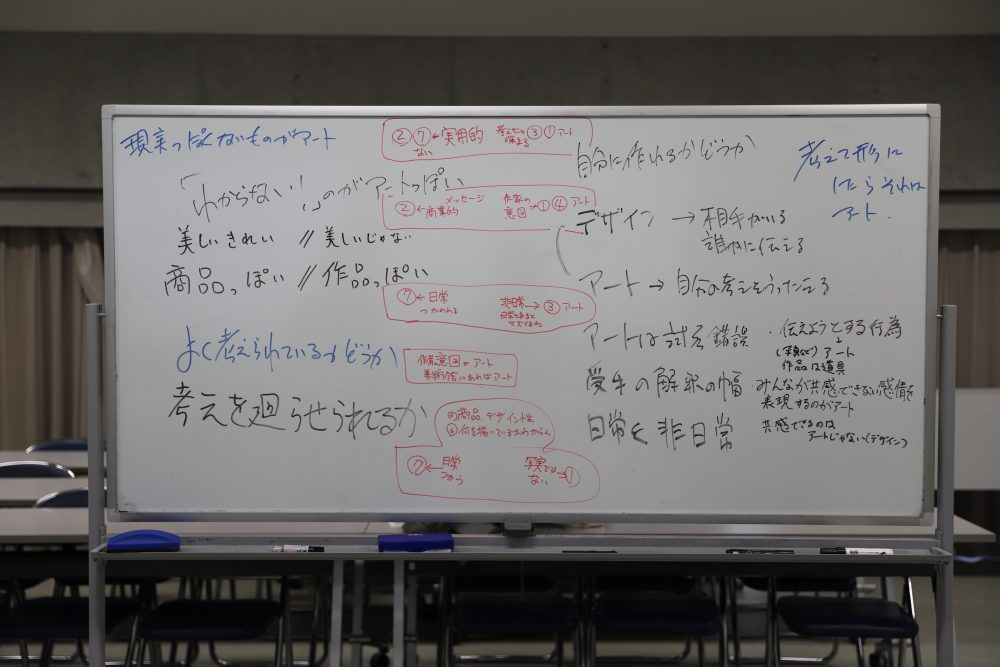 現実っぽくないものがアート
「わからない!」のがアートっぽい
美しいきれい // 美しいじゃない
商品っぽい // 作品っぽい
よく考えられているかどうか
考えを廻らせられるか
② ⑦ ← 実用的 ③ ① アート
ない 深まる
メッセージ 作家の
② ← 商業的 意図 → ① ④ アート
⑦ ← 日常 非日常 → ③ アート
つかわれる 日常にあると
作者意図がアート
美術館にあればアート
商品、デザイン
何を描いているかわからん
⑦ ← 日常 写実では → ①
つかう ない
自分に作れるかどうか
デザイン → 相手がいる
誰かに伝える
アート → 自分の考えをうったえる
アートは試行錯誤
受手の解釈の幅
日常と非日常
考えて形に
したらそれは
アート.
・伝えようとする行為
↓
アート
作品は道具
・みんなが共感できない感情を
表現するのがアート
共感できるのは
アートじゃない(デザイン)